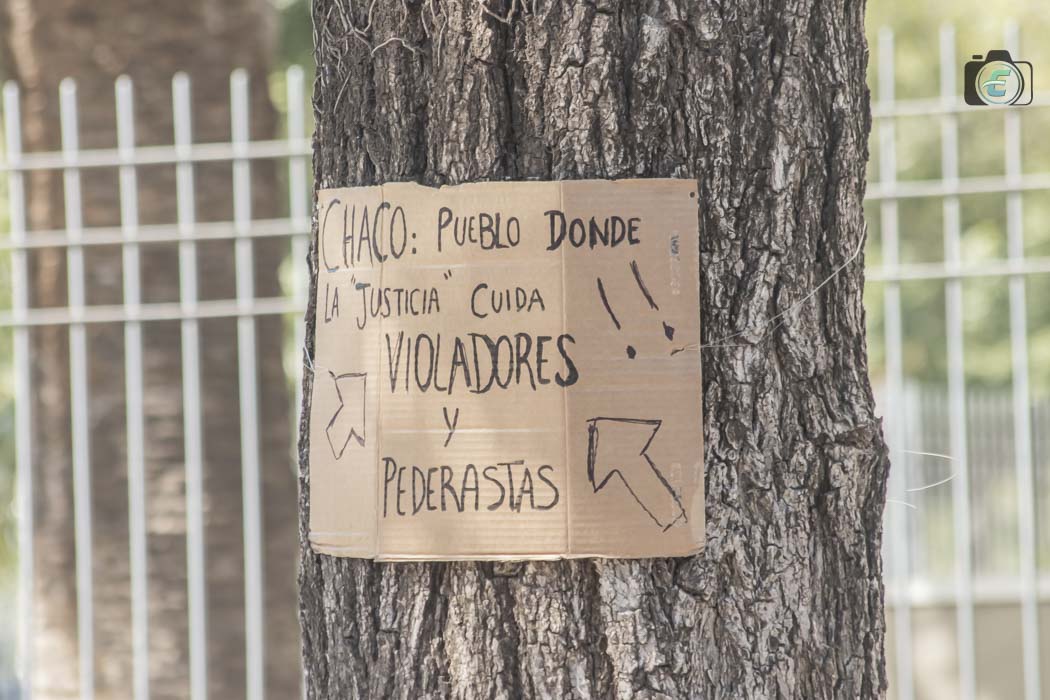 CHACO: PUEBLO DONDE
LA "JUSTICIA" CUIDA
VIOLADORES !!
Y
PEDERASTAS
E